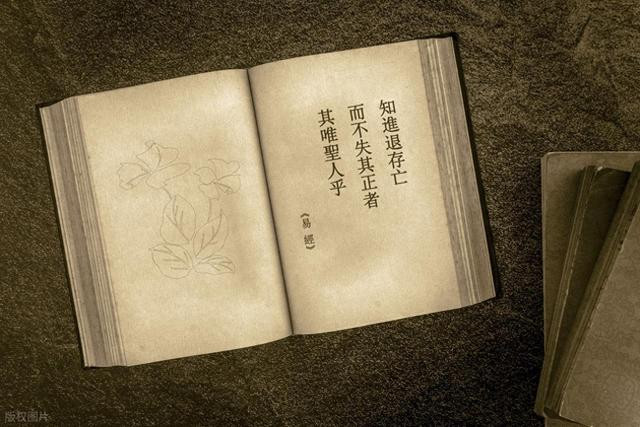 知進退存亡
而不失其正者
其唯聖人乎
《易經》
版权图片